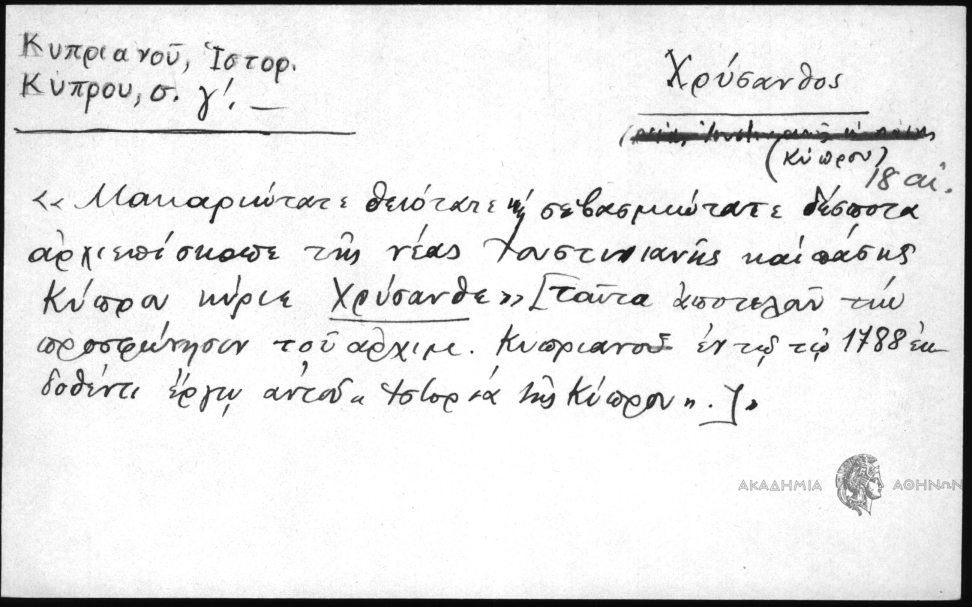 Κυπριανοῦ, Ἱστορ.
Κύπρου, σ. γ΄. —
Χρύσανθος
(Κύπρου)
18 αἰ.
«Μακαριώτατε θειότατε καὶ σεβασμιώτατε δέσποτα
ἀρχιεπίσκοπε τῆς νέας Ἰουστινιανῆς καὶ πάσης
Κύπρου κύριε Χρύσανθε» [ταῦτα ἀποτελοῦν τὴν
προσφώνησιν τοῦ ἀρχιμ. Κυπριανοῦ ἐν τῷ τῷ 1788 ἐκ
δοθέντι ἔργῳ αὐτοῦ «Ἱστορία τῆς Κύπρου».]»
ΑΚΑΔΗΜΙΑ ΑΘΗΝΩΝ